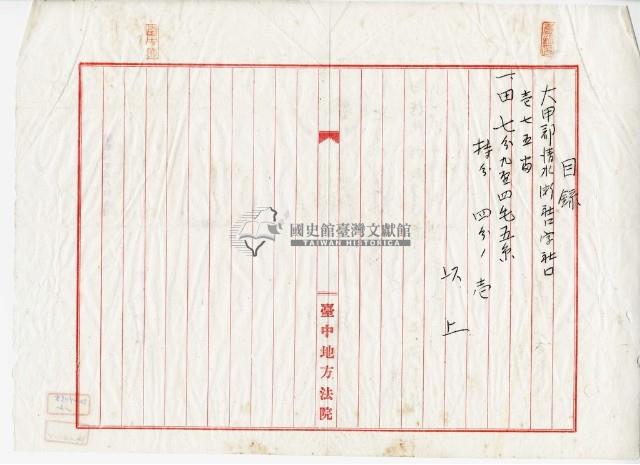 目錄
大甲郡清水街社口字社口
壱七五番
一、田 七分九厘四毛五糸
持分 四分ノ壱
以上
臺中地方法院
國史館臺灣文獻館
TAIWAN HISTORICA